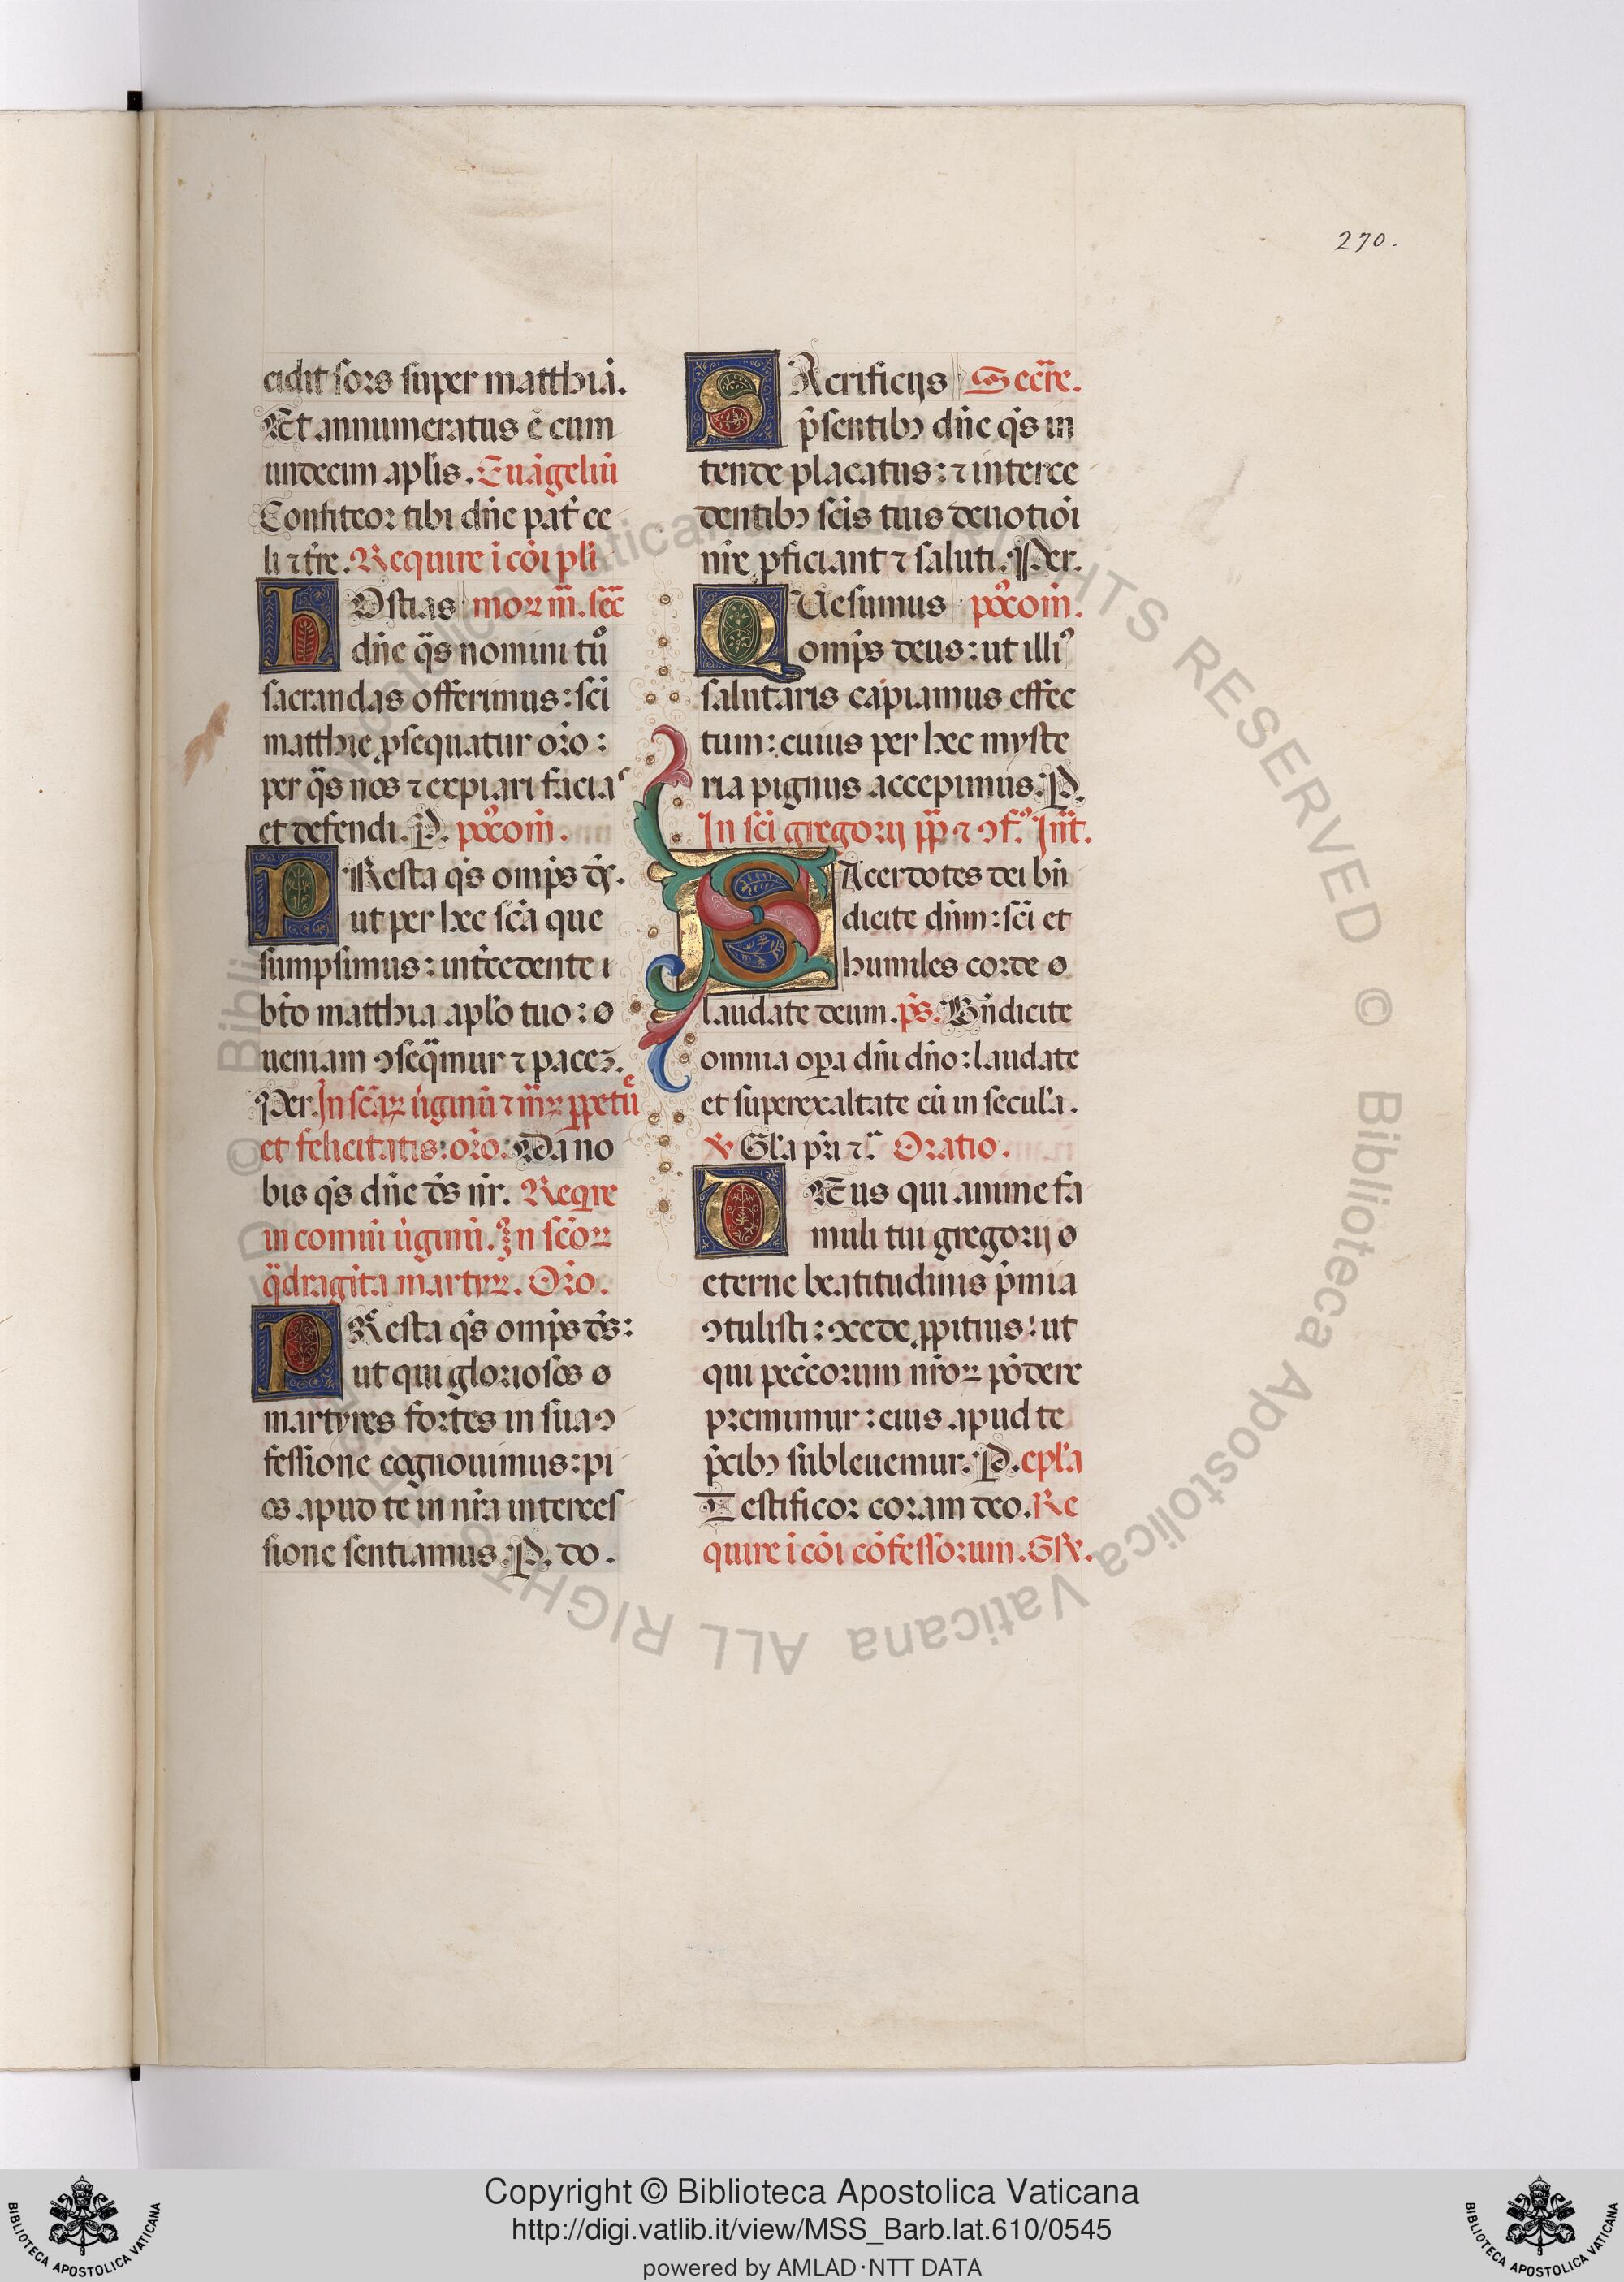 270.
cidit sors super matthiā.
Et annumeratus ē cum
undecim aplis. Euāgeliū
Confiteor tibi dn̄e pat̄ ce
li ⁊ tr̄e. Require ī cōi pli
hOstias morū. sec̄
dn̄e q̄s nomini tuo
sacrandas offerimus: sc̄i
matthie ꝓsequatur or̄o:
per q̄s nos ⁊ expiari facias
et defendi. P. poꝰcom̄.
PResta q̄s om̄ps ds̄.
ut per hec sc̄a que
sumpsimus: int̄cedente
bt̄o matthia aplo tuo:
ueniam ꝯseq̄mur ⁊ pacez.
Per. In sc̄aꝝ ūginū ⁊ mr̄ꝝ ꝑpetue
et felicitatis: or̄o: Da no
bis q̄s dn̄e ds̄ nr̄. Reqre
in comūi ūginū. In sc̄oꝝ
q̄dragīta martyꝝ. Or̄o.
PResta q̄s om̄ps ds̄:
ut qui gloriosos
martyres fortes in sua ꝯ
fessione cognouimus: pi
os apud te in nr̄a interces
sione sentiamus. P. do.
SAcrificijs Secr̄e.
p̄sentibꝫ dn̄e q̄s in
tende placatus: ⁊ interce
dentibꝫ sc̄is tuis deuotiōi
nr̄e ꝓficiant ⁊ saluti. Per.
QUesumus poꝰcom̄.
om̄ps deus: ut illiꝰ
salutaris capiamus effec
tum: cuius per hec myste
ria pignus accepimus. P.
In sc̄i gregorij pp̄ ⁊ ꝯf. Int̄.
SAcerdotes dei bn̄
dicite dn̄m: sc̄i et
humiles corde
laudate deum. ps̄. Bn̄dicite
omnia oꝑa dn̄i dn̄o: laudate
et superexaltate eū in secula.
℣ Gl̄a pr̄i ⁊c̄ Oratio.
DEus qui anime fa
muli tui gregorij
eterne beatitudinis p̄mia
ꝯtulisti: ꝯcede ꝓpitius: ut
qui pecc̄orum nr̄oꝝ pōdere
premimur: eius apud te
p̄cibꝫ subleuemur. P. epl̄a
Testificor coram deo. Re
quire ī cōi cōfessorum. GR̄.
© Biblioteca Apostolica Vaticana ALL RIGHTS RESERVED
Copyright © Biblioteca Apostolica Vaticana
http://digi.vatlib.it/view/MSS_Barb.lat.610/0545
powered by AMLAD·NTT DATA
BIBLIOTECA APOSTOLICA VATICANA
BIBLIOTECA APOSTOLICA VATICANA